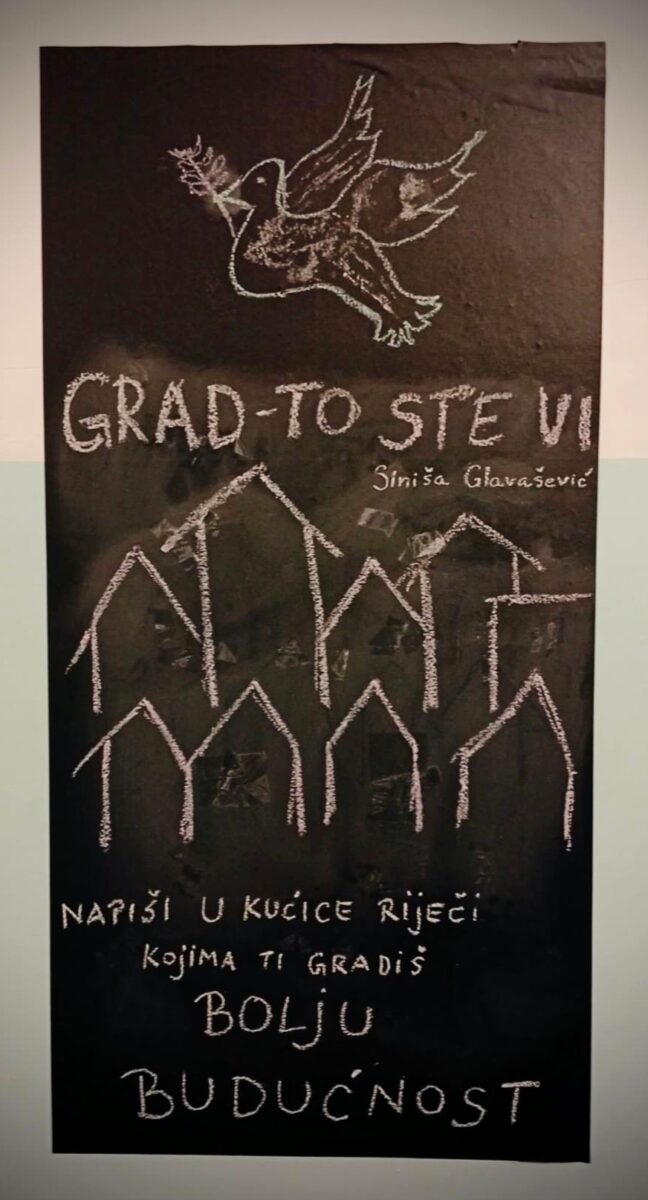 GRAD-TO STE VI
Siniša Glavašević
NAPIŠI U KUĆICE RIJEČI
KOJIMA TI GRADIŠ
BOLJU
BUDUĆNOST